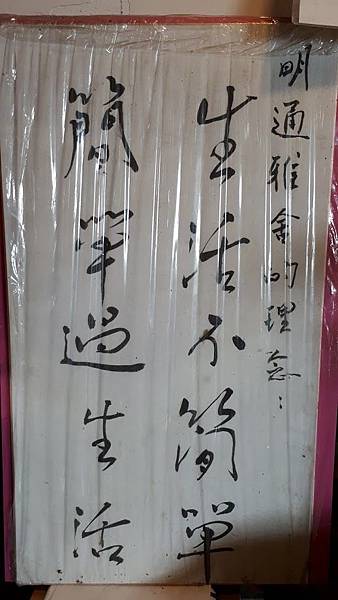 明通雅舍的理念：
生活不簡單
簡單過生活